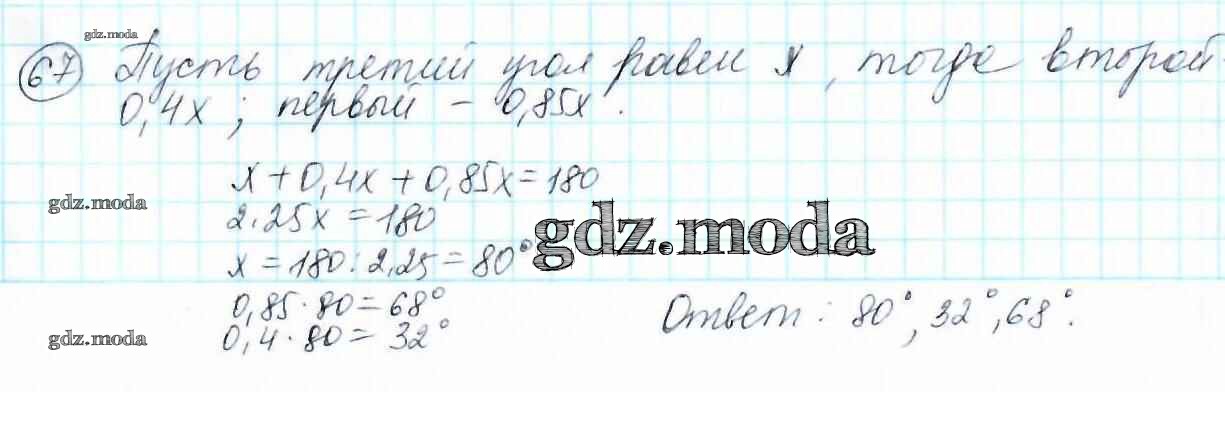 gdz.moda
67 Пусть третий угол равен x, тогда второй -
0,4x; первый – 0,85x.
x + 0,4x + 0,85x = 180
gdz.moda
2.25x = 180
gdz.moda
x = 180 : 2,25 = 80°
0,85 · 80 = 68°
Ответ: 80°, 32°, 68°.
gdz.moda
0,4 · 80 = 32°